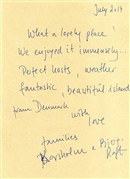 July 2014
What a lovely place!
We enjoyed it immensely...
Perfect hosts, weather
fantastic, beautiful island
from Denmark
with
love
families
&